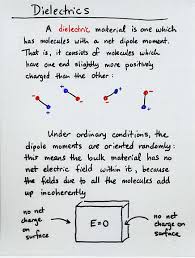 Dielectrics
A dielectric material is one which
has molecules with a net dipole moment.
That is, it consists of molecules which
have one end slightly more positively
charged than the other:
Under ordinary conditions, the
dipole moments are oriented randomly:
this means the bulk material has no
net electric field within it, because
the fields due to all the molecules add
up incoherently
no net
charge on
surface
E=0
no net
charge
on surface